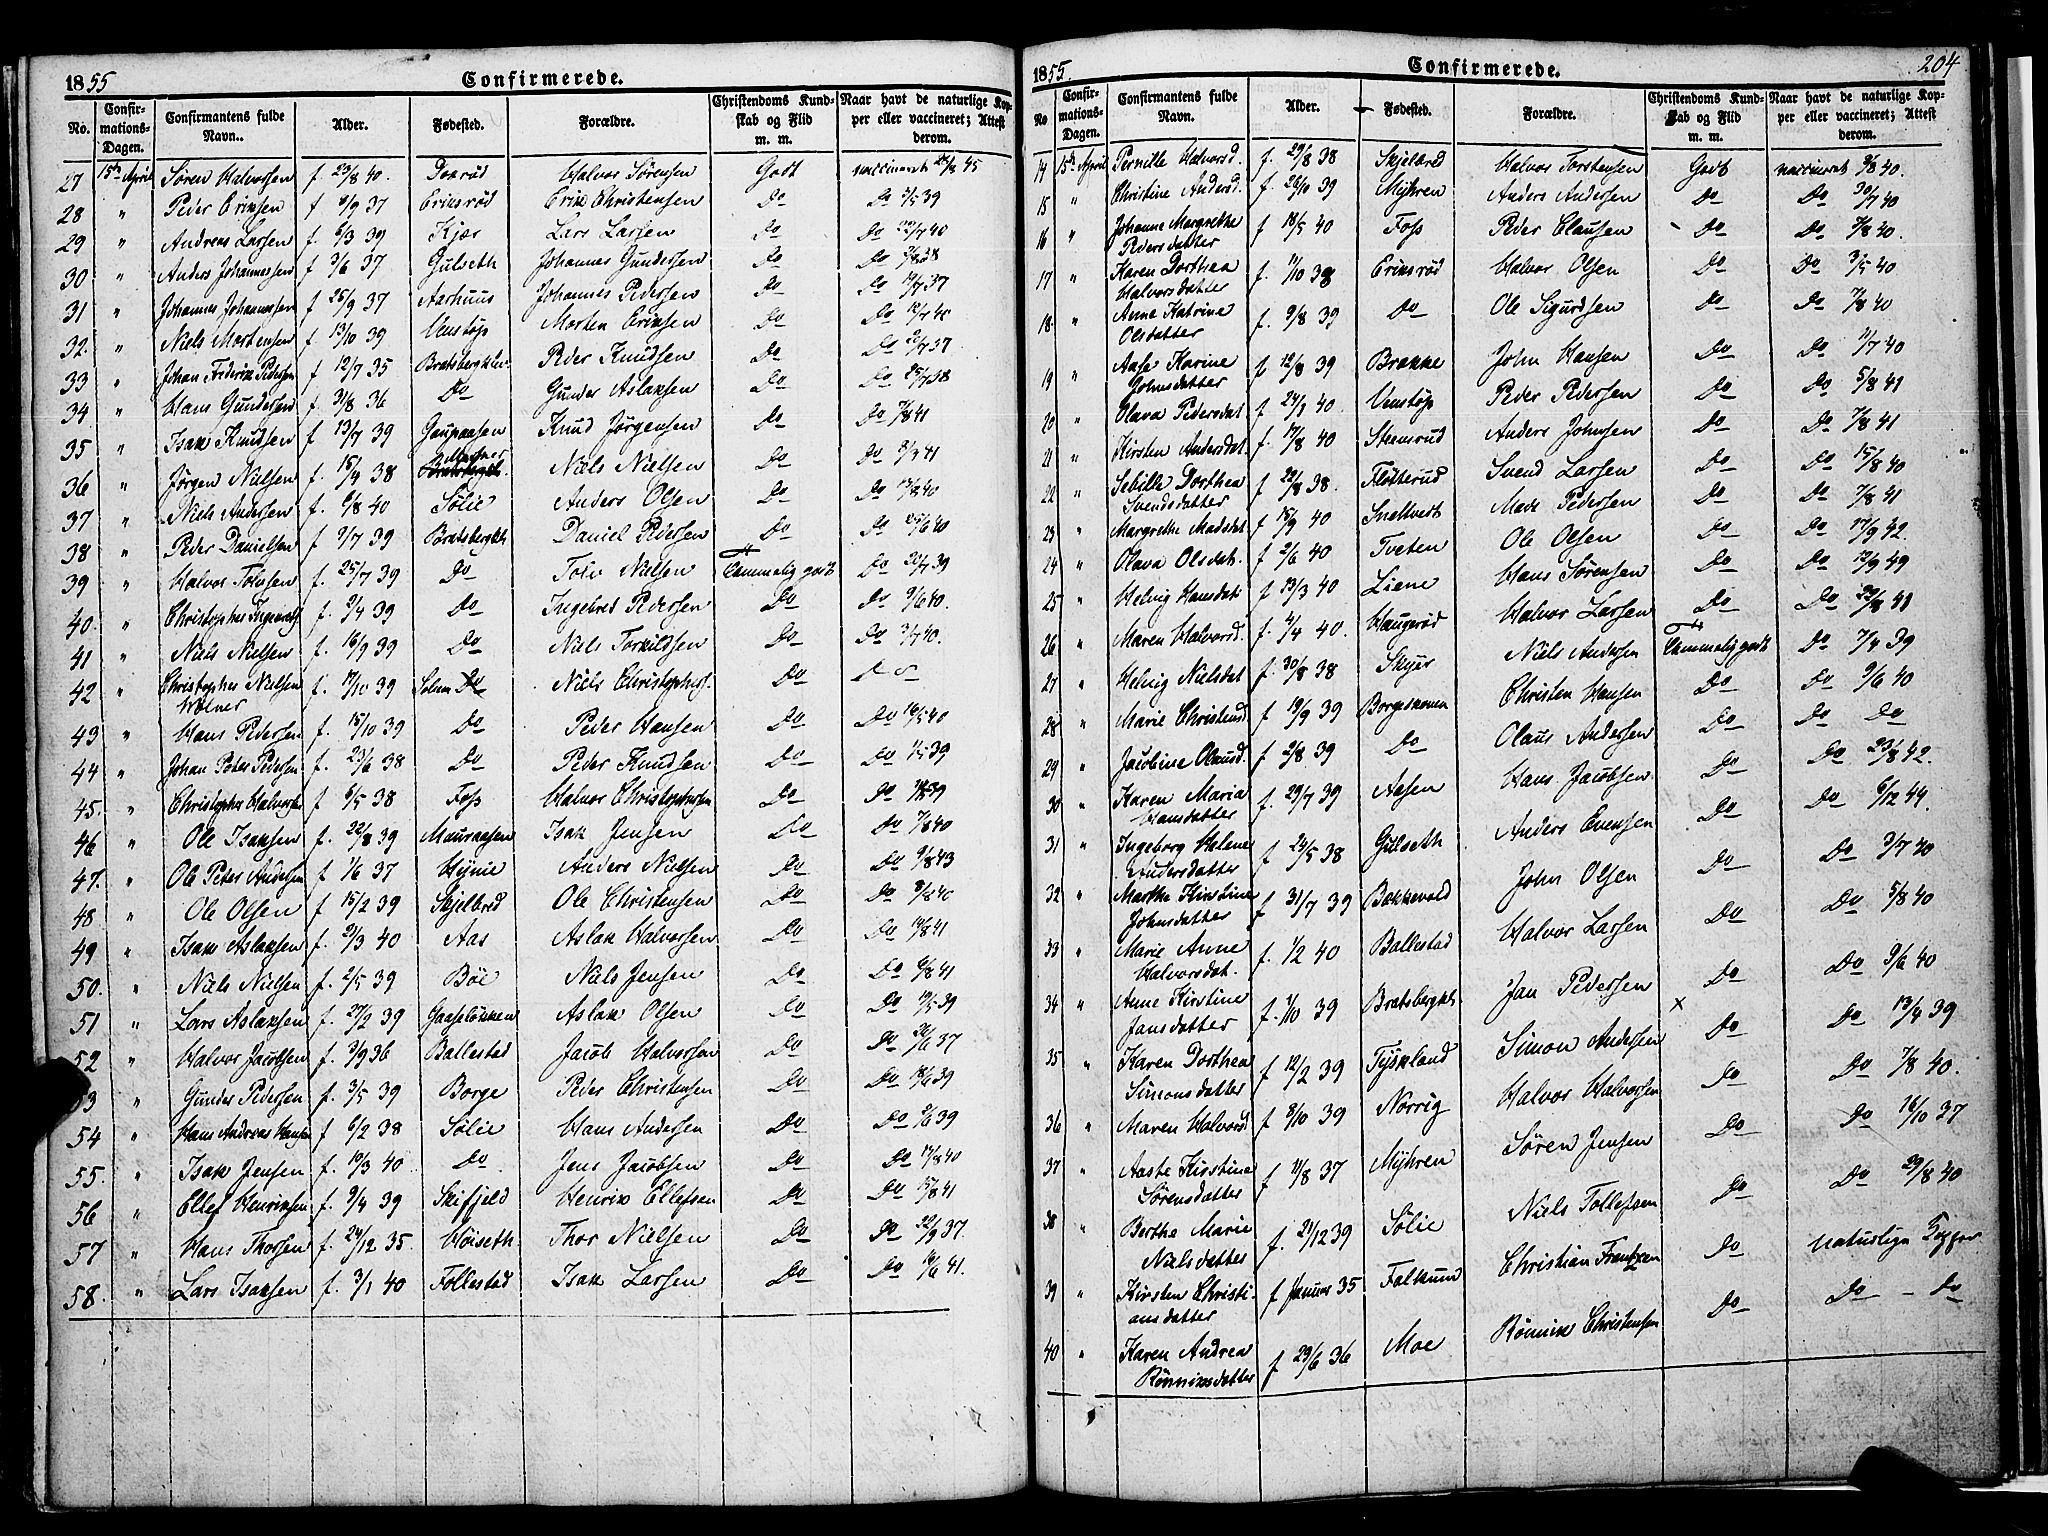 1855 Confirmerede.
No. Confir-mations-Dagen. Confirmantens fulde Navn. Alder. Fødested. Forældre. Christendoms Kundskab og Flid m. m. Naar havt de naturlige Kopper eller vaccineret; Attest derom.
27 15de April Søren Halvorsen f 23/8 40. Halvor Sørensen Godt vaccineret 45
28 " Peder Eriksen f 37 Eriksrød Erik Christensen Do Do 39
29 " Andreas Larsen f. 6/3 39 Kjær Lars Larsen Do Do 40
30 " Anders Johannesen f 3/6 37 Gulseth Johannes Gundersen Do Do 38
31 " Johannes Johannesen f 25/9 37 Aarhuus Johannes Pedersen Do Do 37
32. " Niels Mortensen f 13/10 39 Venstøp Morten Eriksen Do Do 40
33 " Johan Frederik Pedersen f 12/7 35 Bratsbergklev. Peder Knudsen Do Do 37
34 " Hans Gundersen f 31/8 36 Do Gunder Aslaksen Do Do 38
35 " Isak Knudsen f 13/7 39 Gaupaasen Knud Jørgensen Do Do 7/8 41
36 " Jørgen Nielsen f 38 Niels Nielsen Do Do 41
37 " Niels Andersen f. 6/8 40 Sølie Anders Olsen Do Do 40
38 " Peder Danielsen f 7/7 39 Bratsbergkl. Daniel Pedersen Do Do 40
39 " Halvor Tolvsen f. 25/7 39 Do Tolv Nielsen Temmelig godt Do 39
40. " Christopher f. 9/4 39 Do Ingebret Pedersen Do Do 9/6 40.
41 " Niels Nielsen f. 16/9 39 Do Niels Torkildsen Do Do 3/7 40.
42 " Christopher Nielsen f. 17/10 39 Solum Niels Christophers. Do Do
43 " Hans Pedersen f. 15/10 39 Do Peder Hansen Do Do 16/5 40
44 " Johan Peter Pedersen f. 23/6 38 Do Peder Knudsen Do Do 39
45. " Christopher Halvorsen f 6/5 38 Foss Halvor Christophersen Do Do 39
46 " Ole Isaksen f. 22/8 39 Mauraasen Isak Jensen Do Do 7/8 40
47. " Ole Peter Andersen f 1/6 37 Hynie Anders Nielsen Do Do 43
48 " Ole Olsen f 15/2 39 Skjelbred Ole Christensen Do Do 40
49 " Isak Aslaksen f. 21/3 40 Aas Aslak Halvorsen Do Do 41
50. " Niels Nielsen f. 2/5 39 Böe Niels Jensen Do Do 6/8 41
51 " Lars Aslaksen f. 27/2 39 Gaaseløkken Aslak Olsen Do Do 39
52 " Halvor Jacobsen f. 3/9 36 Ballestad Jacob Halvorsen Do Do 37
53 " Gunder Pedersen f. 3/5 39 Borge Peder Christensen Do Do 39
54 " Hans Andreas Hansen f 6/2 38 Sølie Hans Andersen Do Do 39
55. " Isak Jensen f. 10/3 40. Do Jens Jacobsen Do Do 17/8 40
56 " Ellef Henriksen f. 9/4 39 Skifjeld Henrik Ellefsen Do Do 15/8 41
57 " Hans Thorsen f. 24/12 35. Höiseth. Thor Nielsen Do Do 22/9 37.
58. " Lars Isaksen f. 3/1 40 Follestad Isak Larsen Do Do 16/6 41.
1855. Confirmerede. 204
No Confir-mations-Dagen. Confirmantens fulde Navn. Alder. Fødested. Forældre. Christendoms Kundskab og Flid m. m. Naar havt de naturlige Kopper eller vaccineret; Attest derom.
14 15de April Pernille Halvorsd. f. 29/8 38 Skjelbred Halvor Torstensen Godt vaccineret 40.
15 " Christine Andersd. f. 26/10 39 Myhren Anders Andersen Do Do 30/7 40
16 " Johanne Margrethe Pedersdatter f 18/5 40 Foss Peder Clausen Do Do 7/8 40.
17 " Karen Dorthea Halvorsdatter f. 1/10 38 Eriksrød Halvor Olsen Do Do 3/5 40
18. " Anne Katrine Olsdatter f. 9/8 39 Do Ole Sigurdsen Do Do 7/8 40
19 " Aase Karine Johnsdatter f. 12/8 39 Brække John Hansen Do Do 40
20 " Olava Pedersdat. f 40. Venstøp Peder Pedersen Do Do 5/8 41
21 " Kirsten Andersdat. f. 17/8 40 Steensrud Anders Johnsen Do Do 7/8 41
22 " Sebille Dorthea Svendsdatter f 22/8 38. Fløtterud Svend Larsen Do Do 15/8 40
23 " Margrethe Madsdat. f 15/9 40 Snaltvedt Mads Pedersen Do Do 7/8 41
24 " Olava Olsdat. f 2/6 40 Tveten Ole Olsen Do Do 17/9 42.
25 " Helvig Hansdat. f 13/3 40 Liane Hans Sørensen Do Do 12/9 49
26 " Maren Halvorsd. f. 4/4 40. Haugerød Halvor Larsen Do Do 41
27 " Helvig Nielsdat f. 30/8 38 Niels Andersen Temmelig godt Do 7/4 39
28 " Marie Christensd. f 19/9 39 Borgeskoven Christen Hansen Do Do 9/6 40
29 " Jacobine Olausd. f 2/8 39 Do Olaus Andersen Do Do Do
30 " Karen Maria Hansdatter f. 29/7 39 Aasen Hans Jacobsen Do Do 23/8 42.
31 " Ingeborg Helene Andersdatter f 24/5 38 Gulseth Anders Evensen Do Do 6/12 44.
32 " Marthe Kirstine Johnsdatter f 31/7 39 Bakkevold John Olsen Do Do 3/7 40
33 " Marie Anne Halvorsdat. f. 1/2 40 Ballestad Halvor Larsen Do Do 5/8 40
34 " Anne Kirstine Jansdatter f. 1/10 39 Bratsbergkl. Jan Pedersen Do Do 9/6 40
35 " Karen Dorthea Simonsdatter f 12/2 39 Tyskland Simon Andersen x Do Do 13/4 39
36 " Maren Halvorsd f 8/10 39 Norrig Halvor Halvorsen Do Do 7/8 40.
37 " Aaste Kirstine Sørensdatter f 11/8 37 Myhren Søren Jensen Do Do 16/10 37
38 " Berthe Marie Nielsdatter f. 21/12 39 Sølie Niels Tollefsen Do Do 29/8 40
39 " Kirsten Christiansdatter f Januar 35 Falkum Christian Frantzen Do naturlige Kopper
40 " Karen Andrea Rønniksdatter f 29/6 36 Moe Rønnik Christensen Do Do - Do